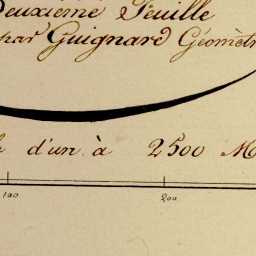 Deuxième Feuille
par Guignard Géomètr
d'un à 2500 M
100 200